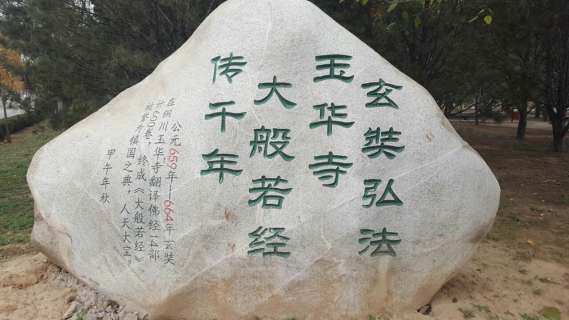 玄奘弘法
玉华寺
大般若经
传千年
公元659年—664年玄奘
在铜川玉华寺翻译佛经14部
终成《大般若经》
镇国之典，人天大宝。
甲午年秋